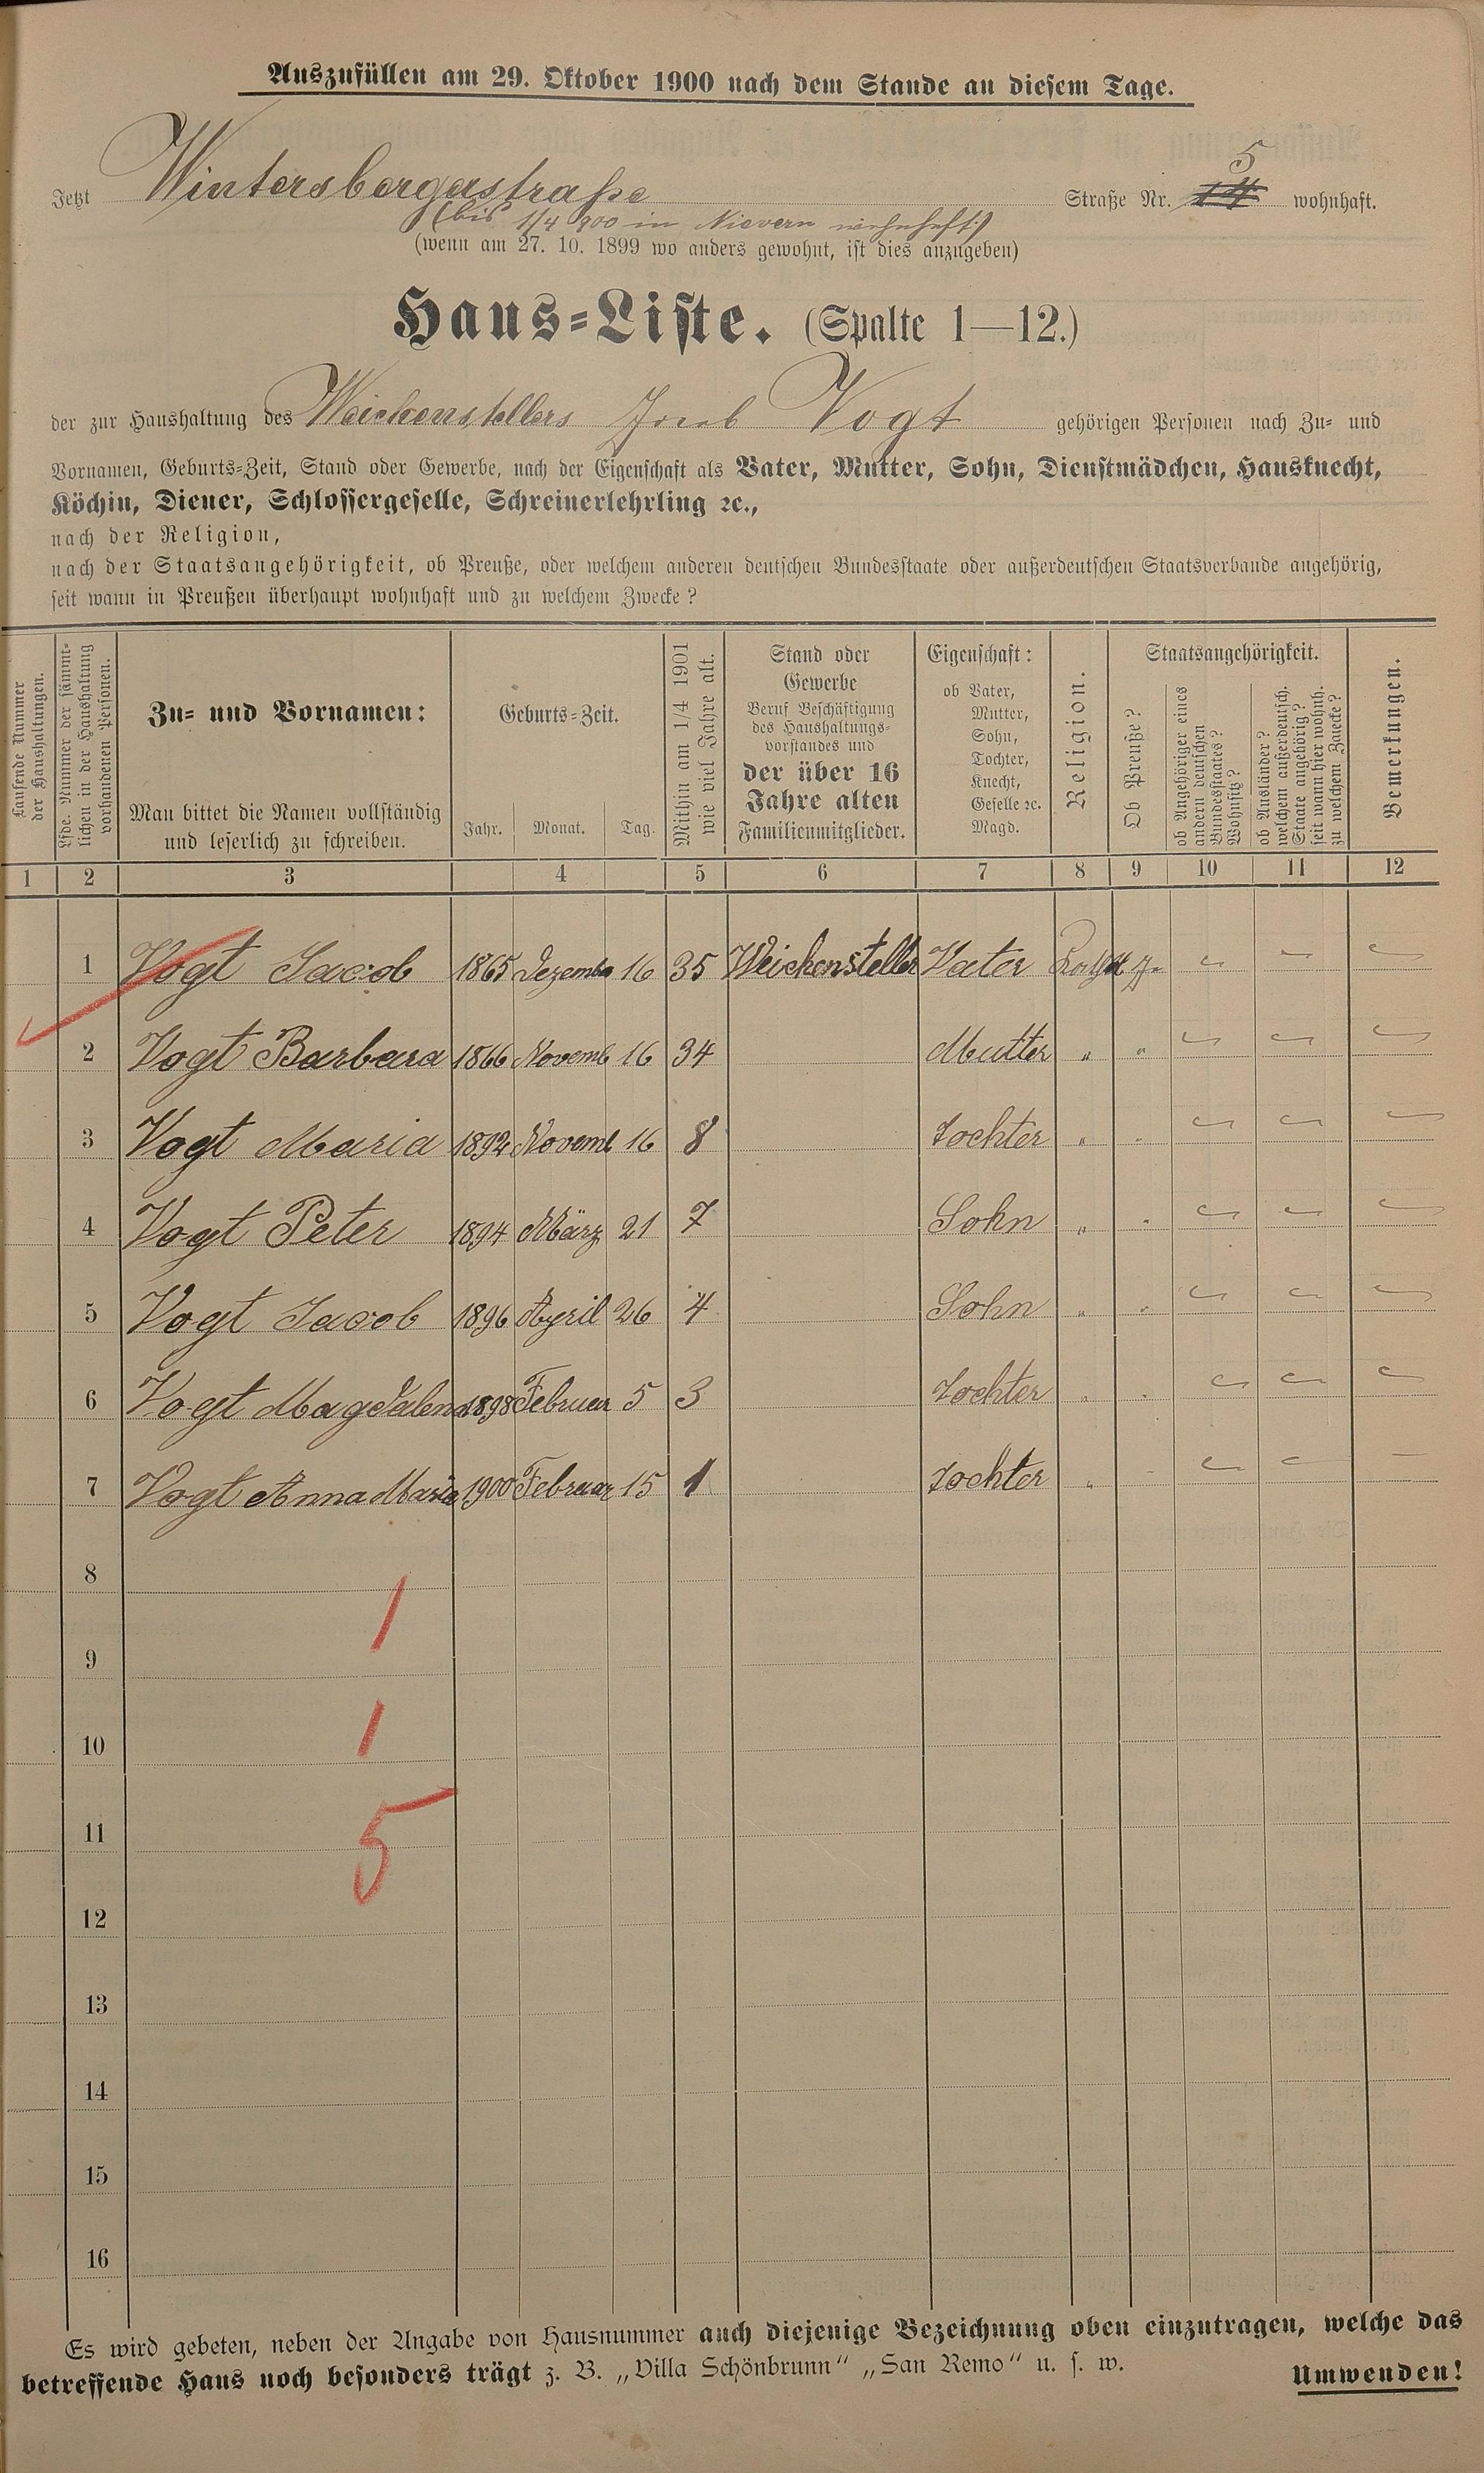 Auszufüllen am 29. Oktober 1900 nach dem Stande an diesem Tage.
Jetzt Wintersbergerstraße Straße Nr. 5 wohnhaft.
(bis 1/4 900 in Nievern wohnhaft)
(wenn am 27. 10. 1899 wo anders gewohnt, ist dies anzugeben)
Haus-Liste. (Spalte 1—12.)
der zur Haushaltung des Weichenstellers Jacob Vogt gehörigen Personen nach Zu- und
Vornamen, Geburts-Zeit, Stand oder Gewerbe, nach der Eigenschaft als Vater, Mutter, Sohn, Dienstmädchen, Hausknecht,
Köchin, Diener, Schlossergeselle, Schreinerlehrling ꝛc.,
nach der Religion,
nach der Staatsangehörigkeit, ob Preuße, oder welchem anderen deutschen Bundesstaate oder außerdeutschen Staatsverbande angehörig,
seit wann in Preußen überhaupt wohnhaft und zu welchem Zwecke?
Laufende Nummer
der Haushaltungen.
Lfde. Nummer der sämmt-
lichen in der Haushaltung
vorhandenen Personen.
Zu- und Vornamen:
Man bittet die Namen vollständig
und leserlich zu schreiben.
Geburts-Zeit.
Jahr. Monat. Tag.
Mithin am 1/4 1901
wie viel Jahre alt.
Stand oder
Gewerbe
Beruf Beschäftigung
des Haushaltungs-
vorstandes und
der über 16
Jahre alten
Familienmitglieder.
Eigenschaft:
ob Vater,
Mutter,
Sohn,
Tochter,
Knecht,
Geselle ꝛc.
Magd.
Religion.
Staatsangehörigkeit.
Ob Preuße?
ob Angehöriger eines
andern deutschen
Bundesstaates?
Wohnsitz?
ob Ausländer?
welchem außerdeutsch.
Staate angehörig?
seit wann hier wohnh.
zu welchem Zwecke?
Bemerkungen.
1 2 3 4 5 6 7 8 9 10 11 12
1 Vogt Jacob 1865 Dezember 16 35 Weichensteller Vater
2 Vogt Barbara 1866 Novemb 16 34 Mutter " "
3 Vogt Maria 1892 Novemb 16 8 Tochter " "
4 Vogt Peter 1894 März 21 7 Sohn " "
5 Vogt Jacob 1896 April 26 4 Sohn " "
6 Vogt Magdalena 1898 Februar 5 3 Tochter " "
7 Vogt Anna Maria 1900 Februar 15 1 Tochter "
8
1
9
10
1
11
5
12
13
14
15
16
Es wird gebeten, neben der Angabe von Hausnummer auch diejenige Bezeichnung oben einzutragen, welche das
betreffende Haus noch besonders trägt z. B. „Villa Schönbrunn“ „San Remo“ u. s. w. Umwenden!